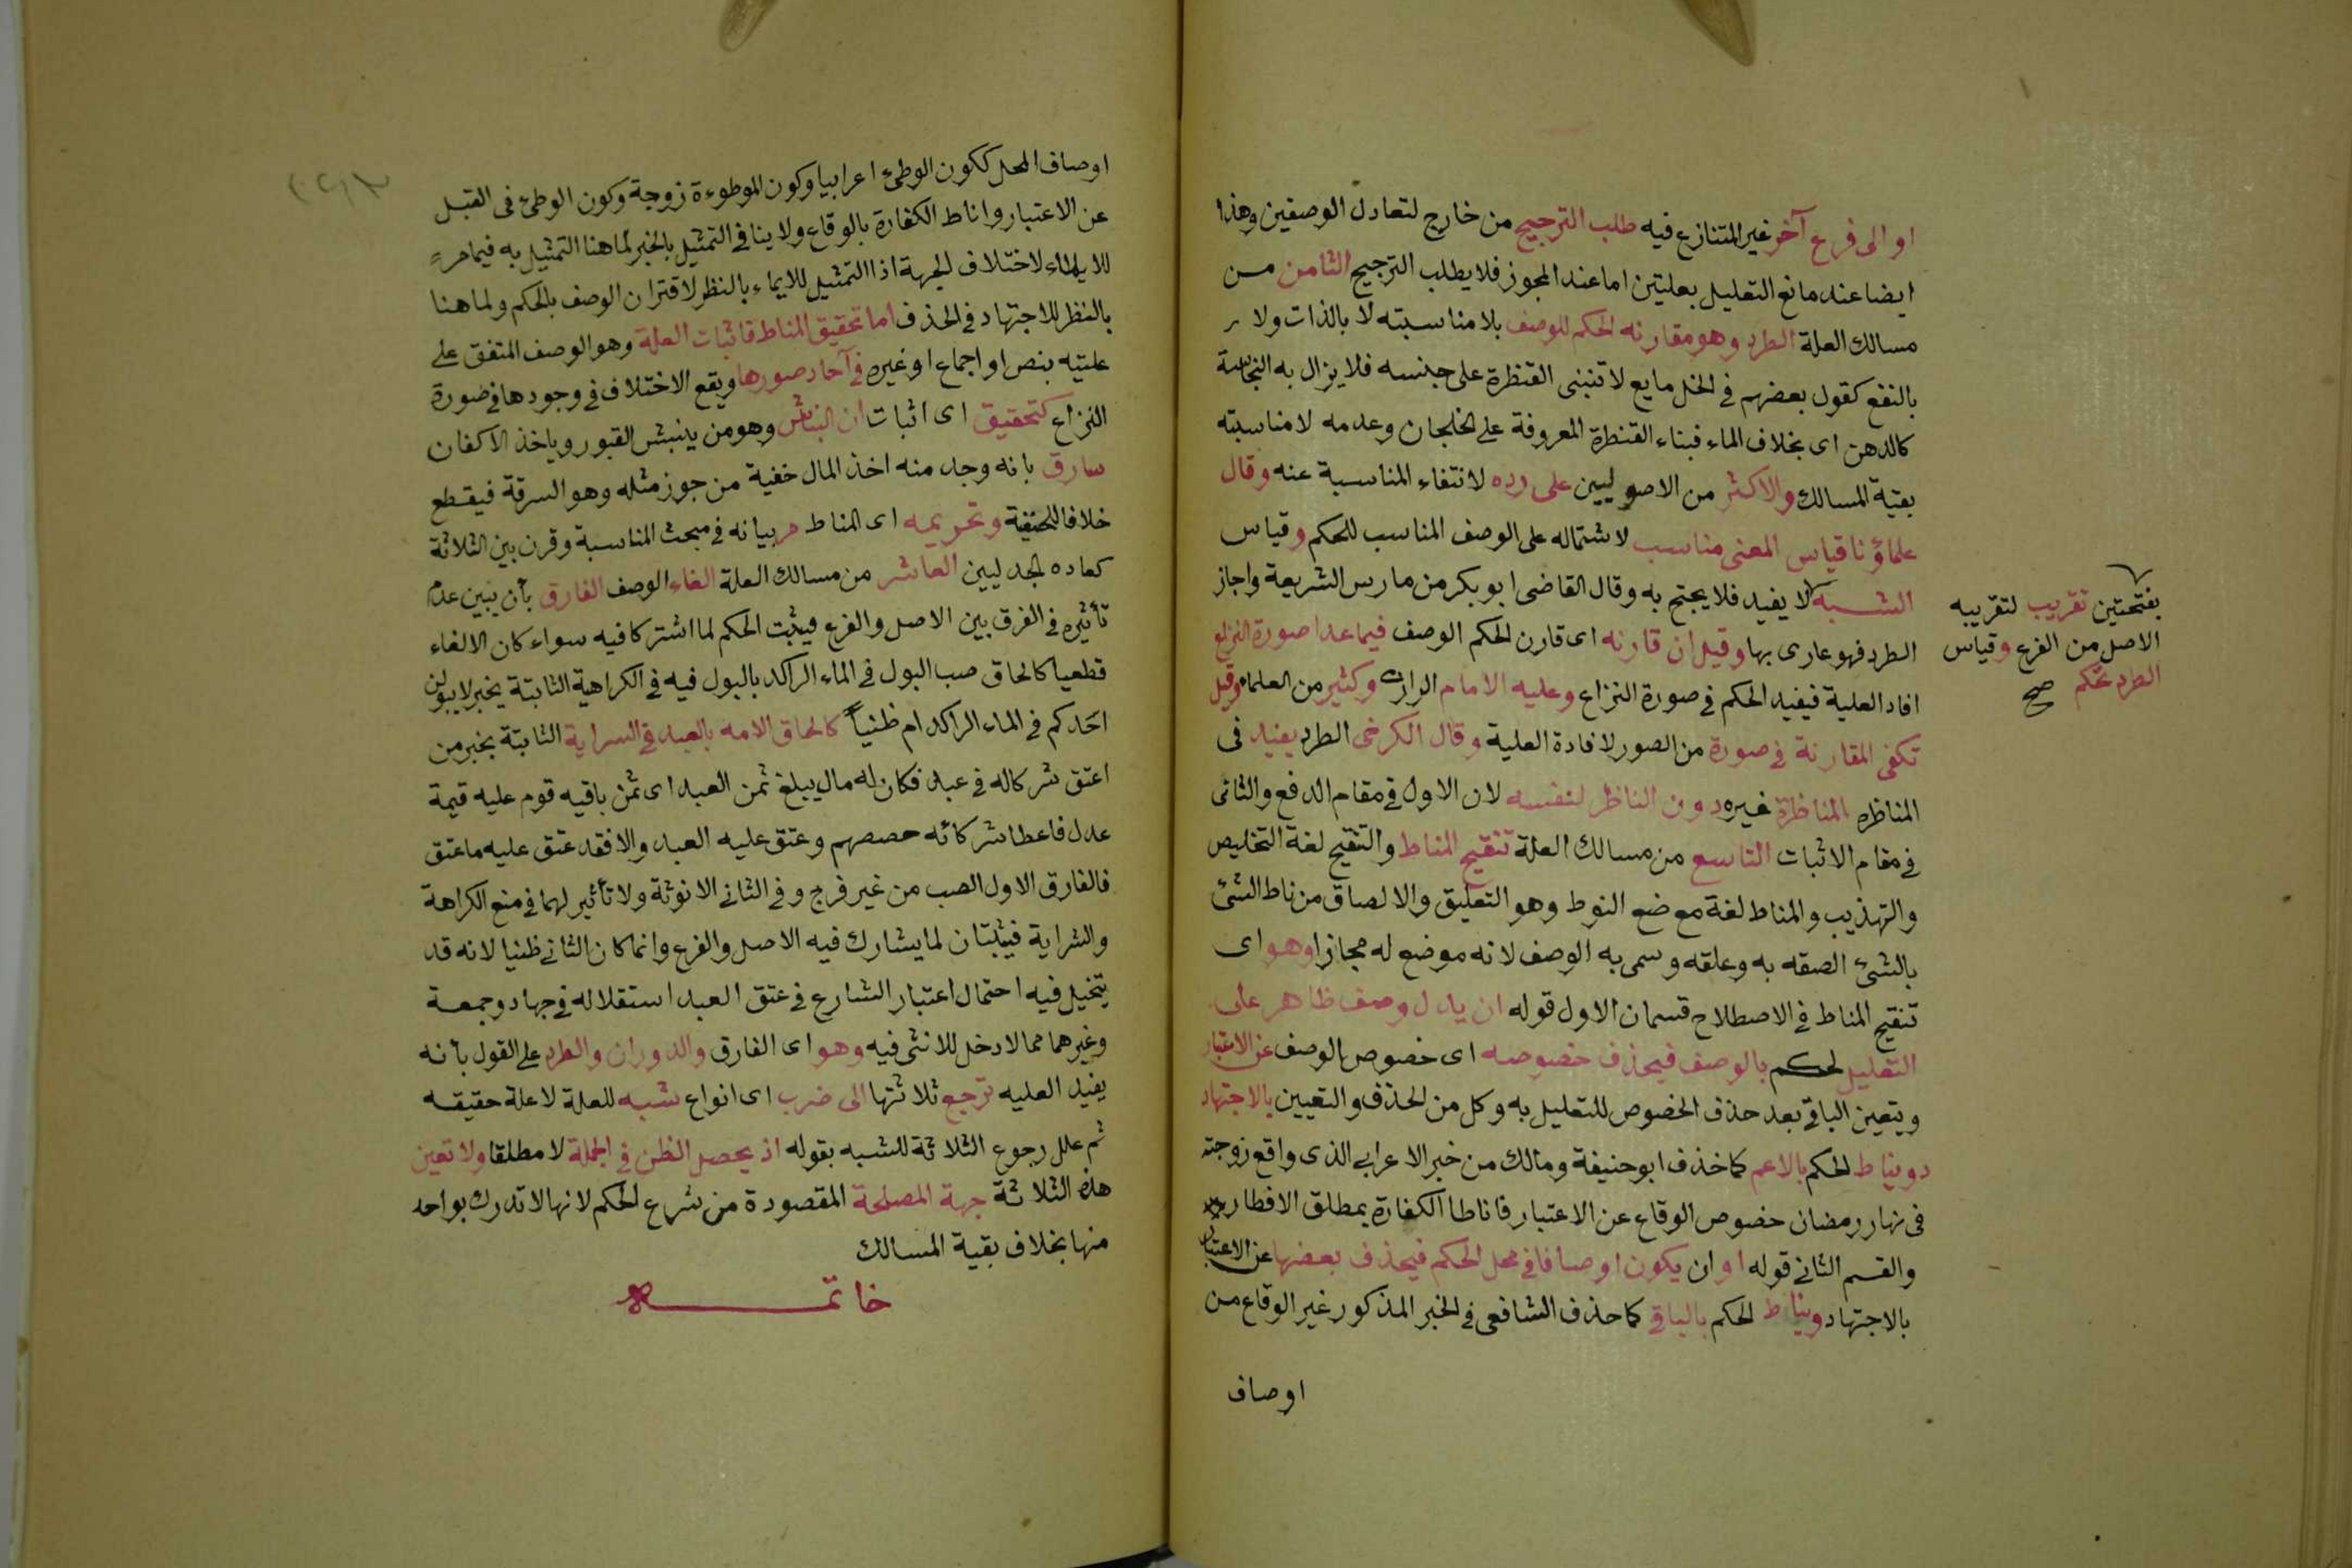 او الى فرع آخر غير المتنازع فيه طلب الترجيح من خارج لتعادل الوصفين وهذا
ايضا عند مانع التعليل بعلتين اما عند المجوز فلا يطلب الترجيح الثامن من
مسالك العلة الطرد وهو مقارنه الحكم للوصف بلا مناسبته لا بالذات ولا
بالنفع كقول بعضهم في الخل مايع لا تنبنى القنظرة على جنسه فلا يزال به النجاسة
كالدهن اى بخلاف الماء فبناء القنطرة المعروفة على الخلجان وعدمه لا مناسبته
بقية المسالك والاكثر من الاصوليين على رده لانتفاء المناسبة عنه وقال
علماؤنا قياس المعنى مناسب لاشتماله على الوصف المناسب للحكم وقياس
الشبه لا يفيد فلا يحتج به وقال القاضى ابو بكر من مارس الشريعة واجاز
بفتحتين تقريب لتقريبه
الاصل من الفرع وقياس
الطرد تحكم صح
الطرد فهو عارى بها وقيل ان قارنه اى قارن الحكم الوصف فيما عدا صورة النزاع
افاد العلية فيفيد الحكم في صورة النزاع وعليه الامام الرازى وكثير من العلماء وقيل
تكفى المقارنة في صورة من الصور لافادة العلية وقال الكرخى الطرد يفيد فى
المناظره المناظرة غيره دون الناظر لنفسه لان الاول في مقام الدفع والثانى
في مقام الاثبات التاسع من مسالك العلة تنقيح المناط والتنقيح لغة التخليص
والتهذيب والمناط لغة موضع النوط وهو التعليق والالصاق من ناط الشئ
بالشئ الصقه به وعلقه وسمى به الوصف لانه موضع له مجازا وهو اى
تنقيح المناط في الاصطلاح قسمان الاول قوله ان يدل وصف ظاهر على
التعليل لحكم بالوصف فيحذف خصوصه اى خصوص الوصف عن الاعتبار
ويتعين الباقى بعد حذف الخصوص للتعليل به وكل من الحذف والتعيين بالاجتهاد
ويناط الحكم بالاعم كما حذف ابو حنيفة ومالك من خبر الاعرابى الذى واقع زوجته
فى نهار رمضان خصوص الوقاع عن الاعتبار فاناطا الكفارة بمطلق الافطار
والقسم الثانى قوله او ان يكون اوصافا في محل الحكم فيحذف بعضها عن الاعتبار
بالاجتهاد ويناط الحكم بالباقى كما حذف الشافعى في الخبر المذكور غير الوقاع من
اوصاف
اوصاف المحل ككون الوطئ اعرابيا وكون الموطوءة زوجة وكون الوطئ فى القبل
عن الاعتبار واناط الكفارة بالوقاع ولا ينافي التمثيل بالخبر لما هنا التمثيل به فيما مر
للايماء لاختلاف الجهة اذ التمثيل للايماء بالنظر لاقتران الوصف بالحكم ولما هنا
بالنظر للاجتهاد في الحذف اما تحقيق المناط فاثبات العلة وهو الوصف المتفق على
عليته بنص او اجماع او غيره في آحاد صورها ويقع الاختلاف في وجودها في صورة
النزاع كتحقيق اى اثبات ان النباش وهو من ينبش القبور وياخذ الاكفان
سارق بانه وجد منه اخذ المال خفية من جوز مثله وهو السرقة فيقطع
خلافا للحنفية وتخريجه اى المناط مر بيانه في مبحث المناسبة وقرن بين الثلاثة
كعاده الجدليين العاشر من مسالك العلة الغاء الوصف الفارق بأن يبين عدم
تأثيره في الفرق بين الاصل والفرع فيثبت الحكم لما اشتركا فيه سواء كان الالغاء
قطعيا كالحاق صب البول في الماء الراكد بالبول فيه في الكراهية الثابتة بخبر لا يبولن
احدكم في الماء الراكد ام ظنياً كالحاق الامه بالعبد في السراية الثابتة بخبر من
اعتق شركاله في عبد فكان له مال يبلغ ثمن العبد اى ثمن باقيه قوم عليه قيمة
عدل فاعطا شركائه حصصهم وعتق عليه العبد والا فقد عتق عليه ما عتق
فالفارق الاول الصب من غير فرج وفي الثانى الانوثة ولا تأثير لهما في منع الكراهة
والسراية فيثبتان لما يشارك فيه الاصل والفرع وانما كان الثانى ظنيا لانه قد
يتخيل فيه احتمال اعتبار الشارع في عتق العبد استقلاله في جهاد وجمعة
وغيرهما مما لا دخل للانثى فيه وهو اى الفارق والدوران والطرد على القول بأنه
يفيد العليه ترجع ثلاثتها الى ضرب اى انواع شبه للعلة لا علة حقيقه
ثم علل رجوع الثلاثة للشبه بقوله اذ يحصل الظن في الجملة لا مطلقا ولا تعين
هذه الثلاثة جهة المصلحة المقصودة من شرع الحكم لانها لا تدرك بواحد
منها بخلاف بقية المسالك
خاتمه